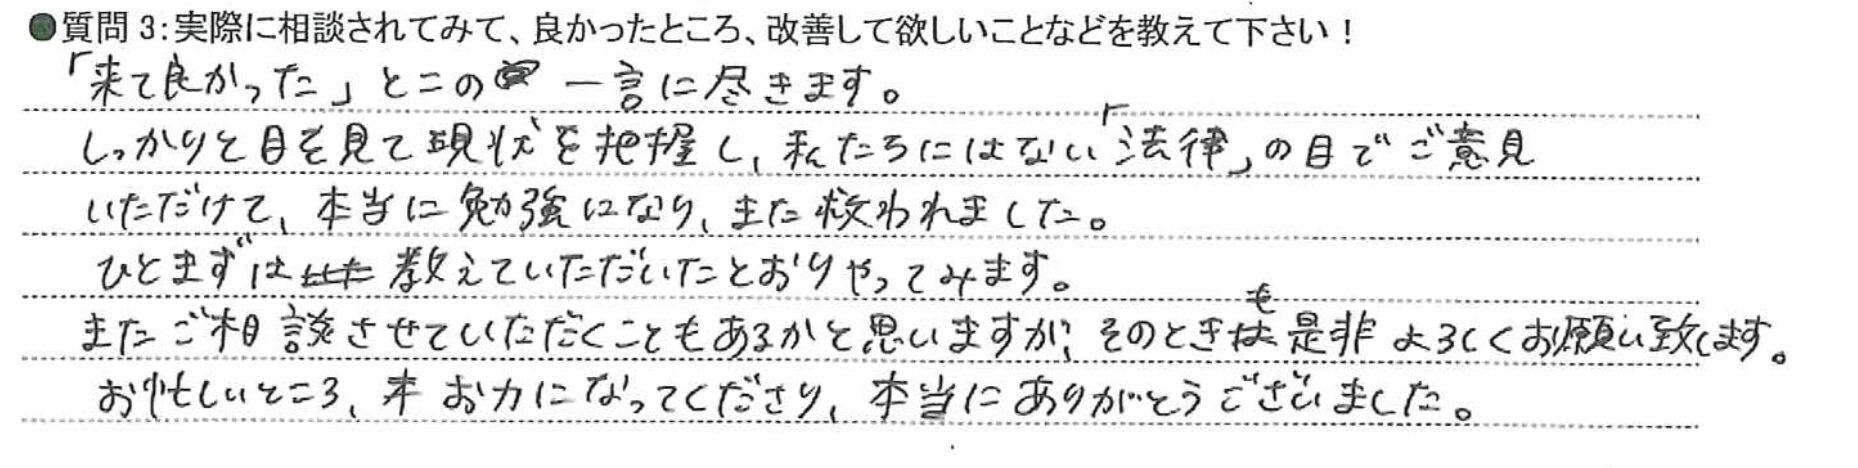 ●質問3:実際に相談されてみて、良かったところ、改善して欲しいことなどを教えて下さい！
「来て良かった」とこの一言に尽きます。
しっかりと目を見て現状を把握し、私たちにはない「法律」の目でご意見
いただけて、本当に勉強になり、また救われました。
ひとまずは教えていただいたとおりやってみます。
またご相談させていただくこともあるかと思いますが、そのときも是非よろしくお願い致します。
お忙しいところ、お力になってくださり、本当にありがとうございました。